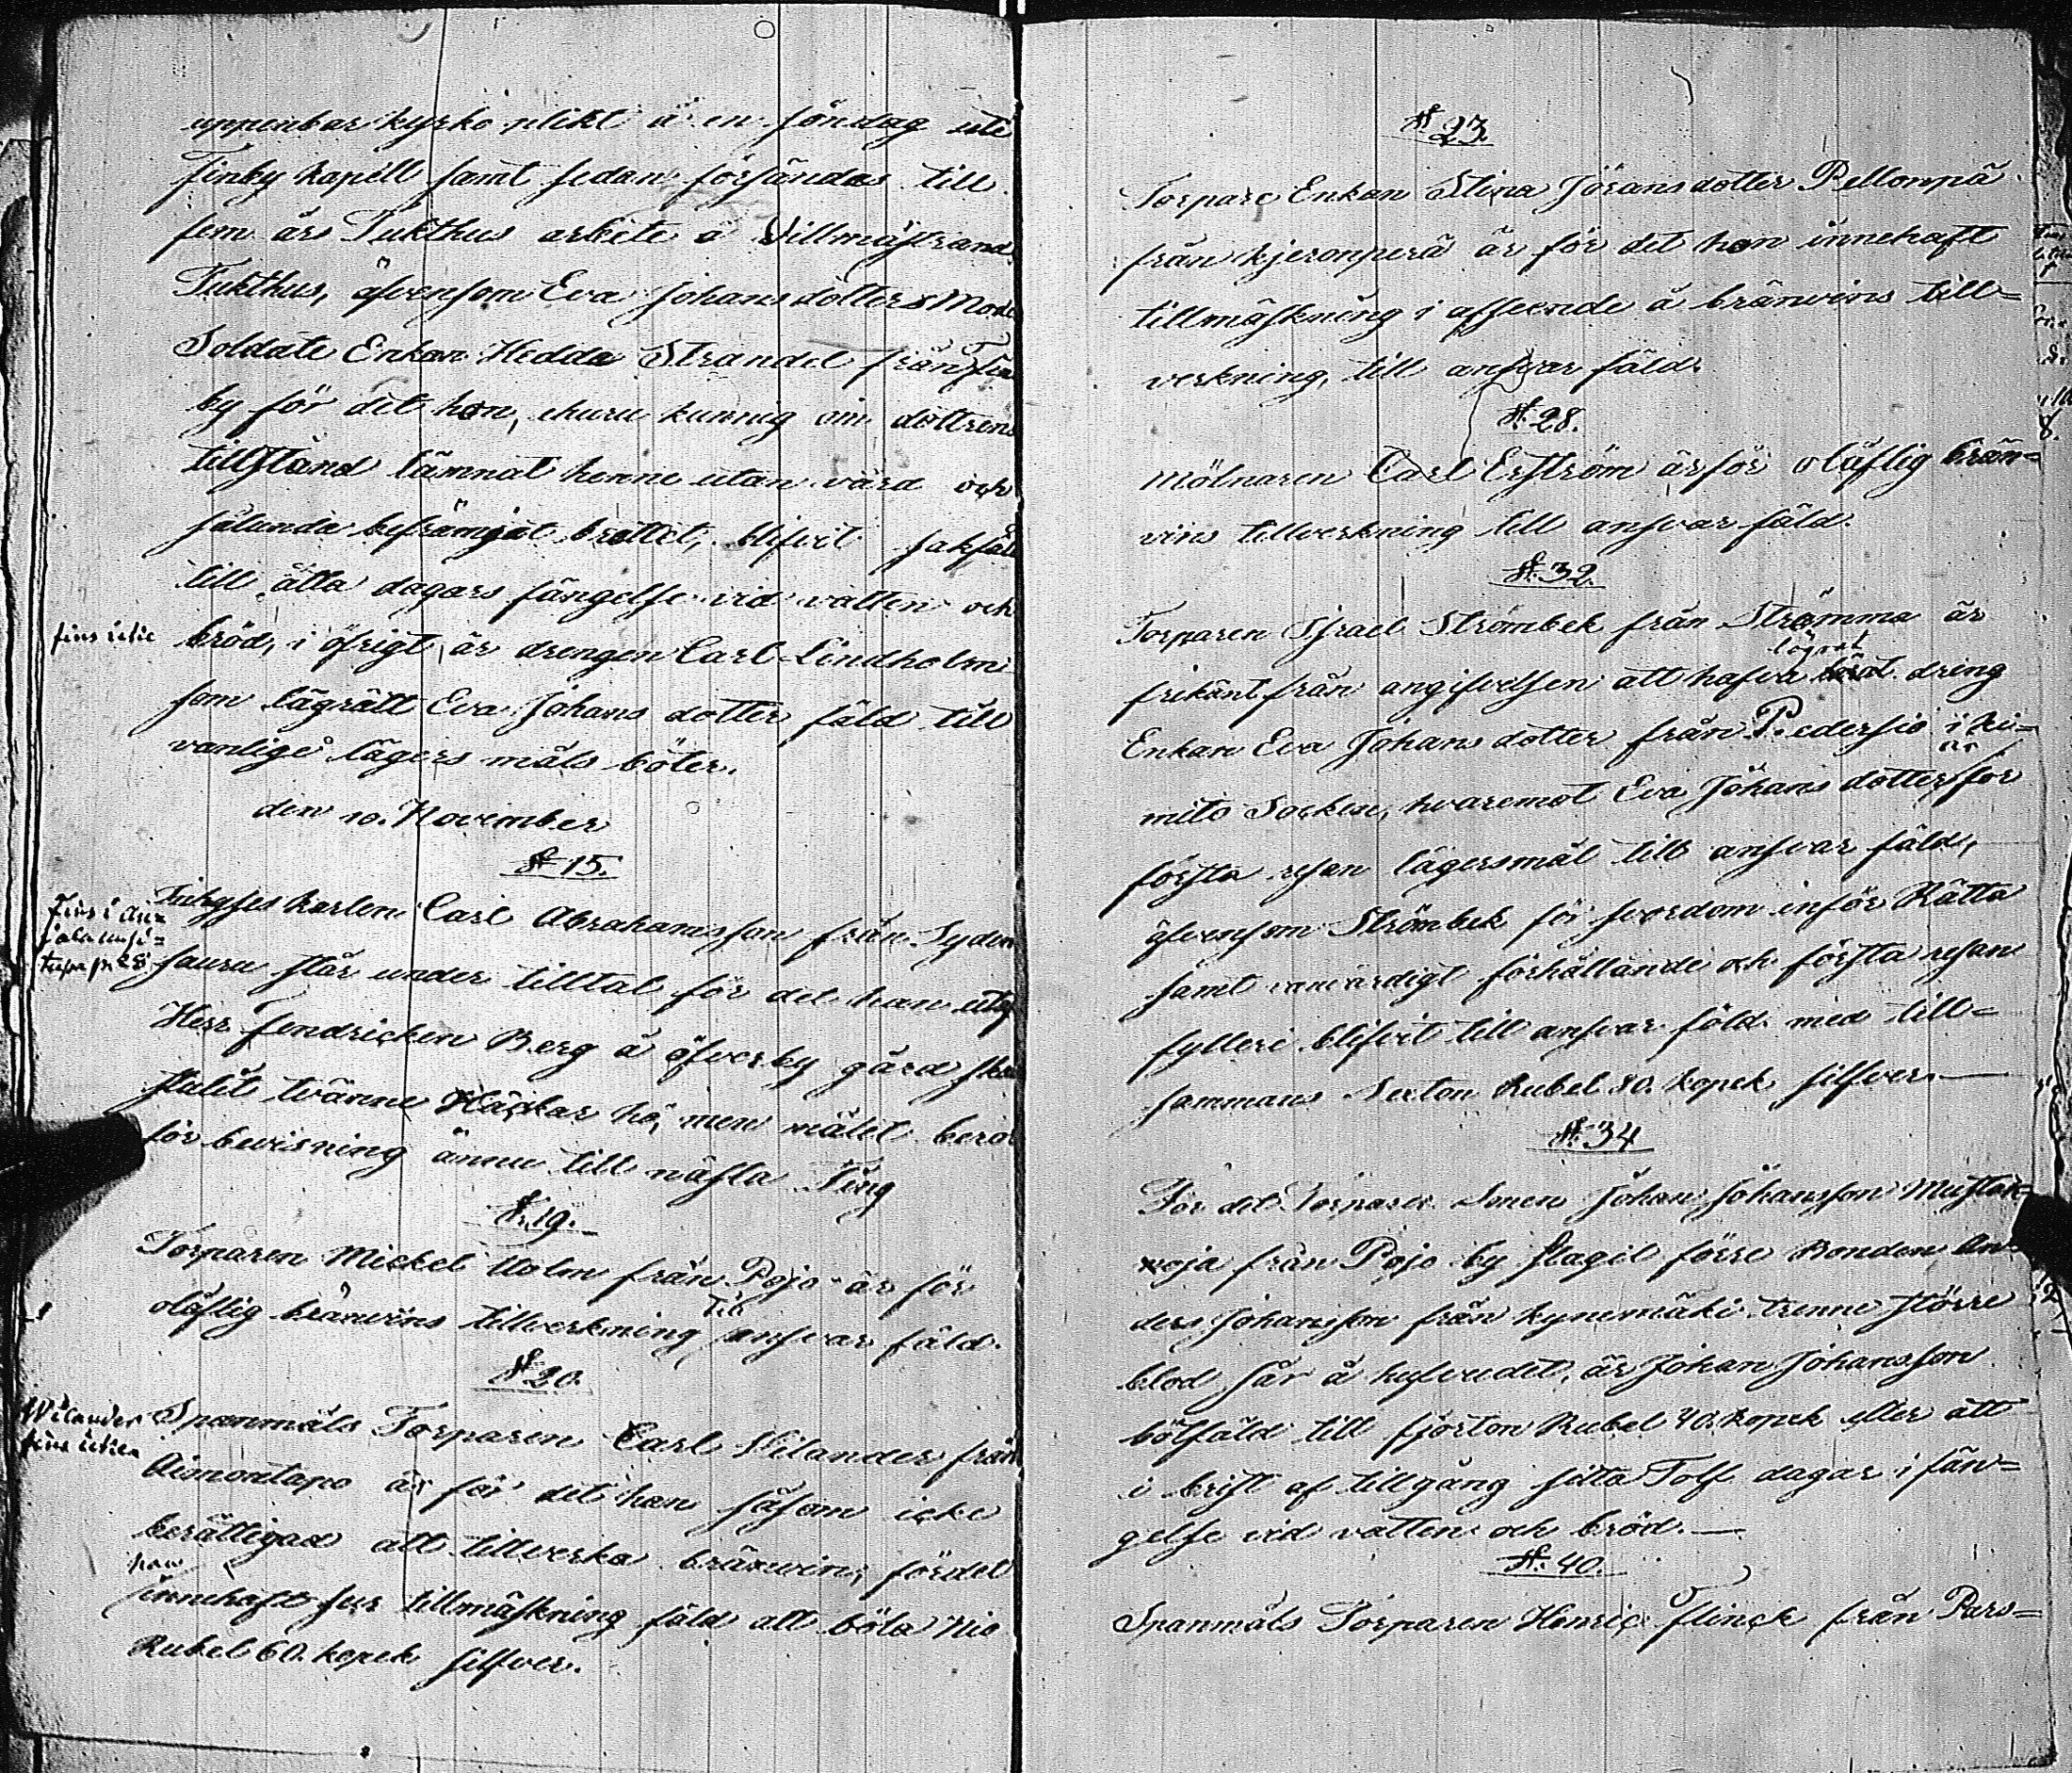 uppenbar kyrko plikt å en söndag uti
Finby kapell samt sedan försändas till
fem års Tukthus arbete å Villmäsrand
Tukthus, äfvensom Eva Johansdotters Mode
Soldate Enkan Hedda Strandel från Fin
by för det hon, ehuru kunnig om dottrens
tillstånd lämnat henne utan vård och
sålunda befrämjat brottet, blifvit sakfäld
till åtta dagars fängelse vid vatten och
fins icke
bröd, i öfrigt är drengen Carl Lindholm
som lägrätt Eva Johans dotter fäld till
vanlige lägers måls böter.
den 10. November
§ 15.
Inhyses karlen Carl Abrahamsson från Syden
Fins i
saura står under tilltal för det han utaf
Herr Fendricken Berg å öfverby gård skall
stulit tvänne Häckar hö, men målet beror
för bevisning ännu till nästa Ting
§ 19.
Torparen Mickel Holm från Pojo är för
olåflig bränvins tillverkning till ansvar fäld.
§ 20.
Wilander fins icke
Spanmåls Torparen Carl Vilander från
Aimontapo är för det han såsom icke
berättigad att tillverka bränvin, för det
han innehaft sur tillmäskning fäld att böta Nio
Rubel 60. kopek silfver.
§ 23.
Torpare Enkan Stina Jöransdotter Pellonpä
från kjeronperä är för det hon innehaft
tillmäskning i afseende å bränvins till=
verkning, till ansvar fäld.
§. 28.
Mölnaren Carl Erström är för olåflig brän=
vins tillverkning till ansvar fäld.
§. 32.
Torparen Israel Strömbek från Strömma är
frikänt från angifvelsen att hafva lägrat dreng
Enkan Eva Johans dotter från Pedersjö i Ki=
mito Socken, hvaremot Eva Johans dotter är för
första resan lägersmål till ansvar fäld,
äfvensom Strömbek för svordom inför Rätta
samt vanvördigt förhållande och första resan
fylleri blifvit till ansvar fäld med till=
sammans Sexton Rubel 80. kopek silfver.—
§. 34
För det Torpare Sonen Johan Johansson Mustan=
oja från Pojo by slagit förre Bonden An=
ders Johansson från kynimäki trenne större
blod sår å hufvudet, är Johan Johansson
bötfäld till fjorton Rubel 40. kopek eller att
i brist af tillgång sitta Tolf dagar i fän=
gelse vid vatten och bröd.—
§. 40.
Spanmåls Torparen Henric Flinck från Pars=